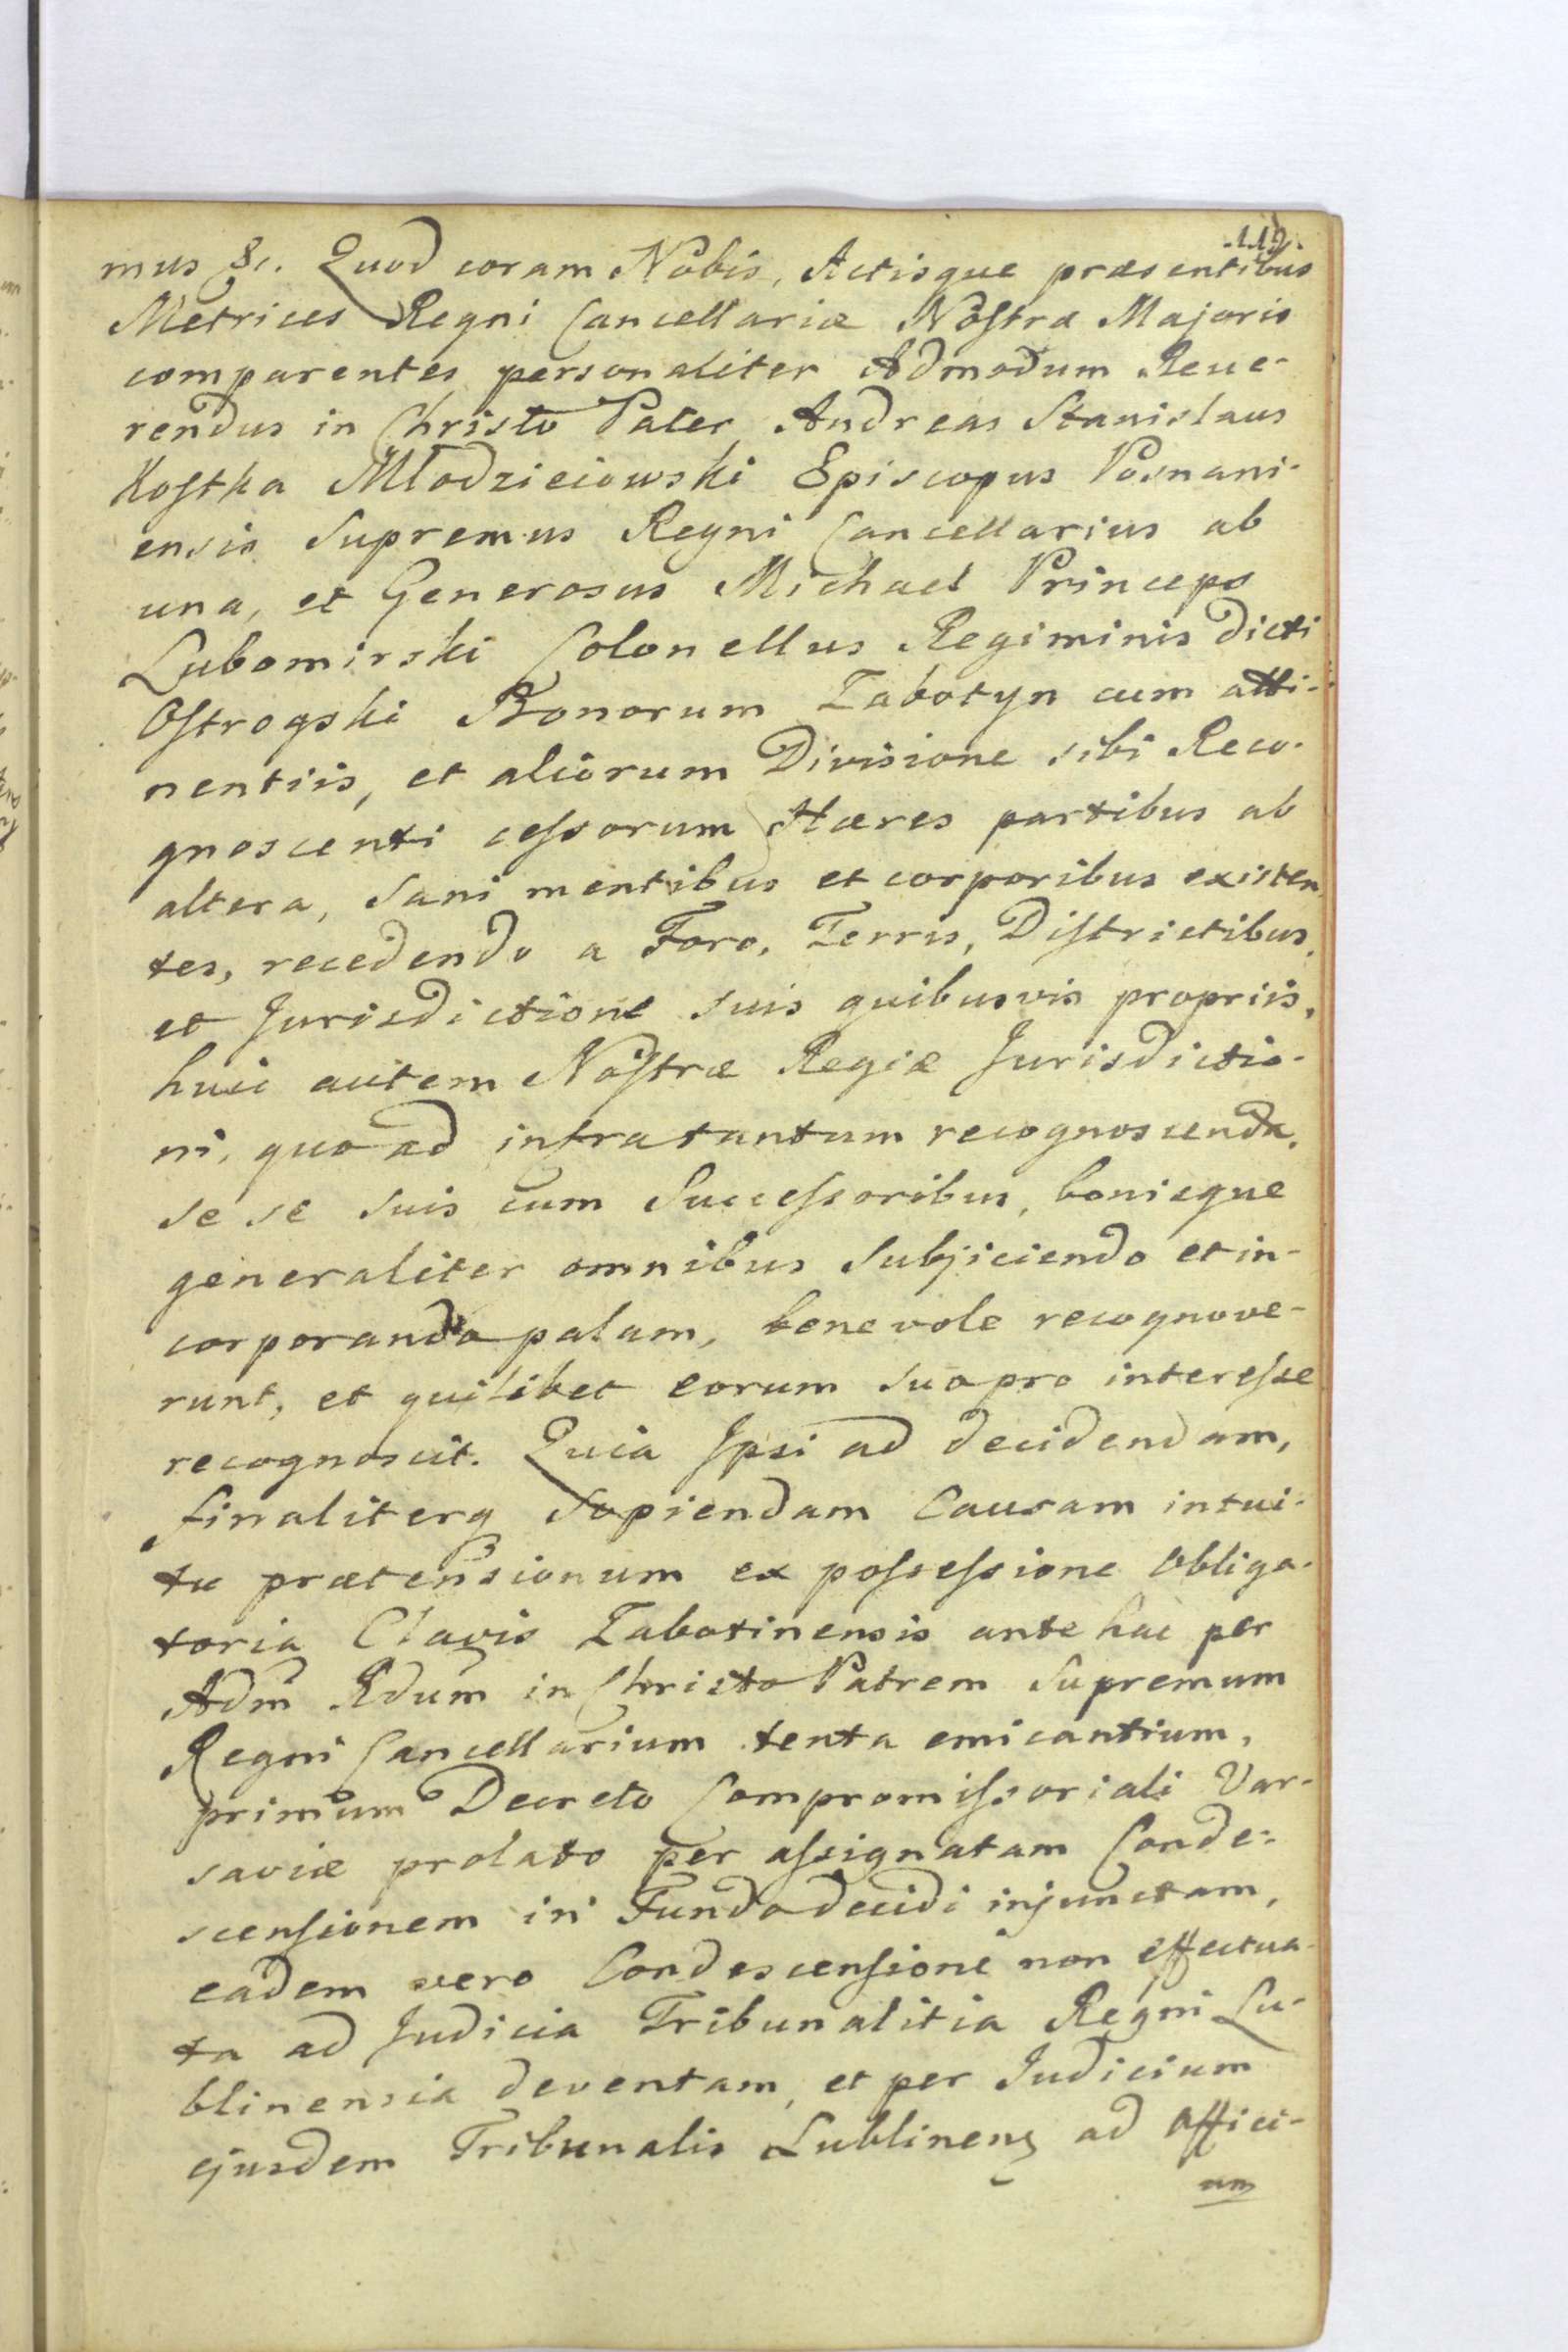 .119.
mus &c. Quod coram Nobis, Actisque præsentibus
Metrices Regni Cancellariæ Nostræ Majoris
comparentes personaliter Admodum Reve-
rendus in Christo Pater Andreas Stanislaus
Kostka Młodzieiowski Episcopus Posnani-
ensis Supremus Regni Cancellarius ab
una, et Generosus Michael Princeps
Lubomirski Colonellus Regiminis dicti
Ostrogski Bonorum Żabotyn cum atti-
nentiis, et aliorum Divisione sibi Reco-
gnoscenti cessorum Hæres partibus ab
altera, Sani mentibus et corporibus existen-
tes, recedendo a Foro, Terris, Districtibus,
et Jurisdictione suis quibusvis propriis,
huic autem Nostræ Regiæ Jurisdictio-
ni, quo ad infra tantum recognoscenda,
se se suis cum Successoribus, bonisque
generaliter omnibus Subjiciendo et in-
corporando palam, benevole recognove-
runt, et quilibet eorum suo pro interesse
recognoscit. Quia Ipsi ad decidendam,
finaliterq Sopiendam Causam intui-
tu prætensionum ex possessione Obliga-
toria Clavis Żabotinensis antehac per
Adm Rdum in Christo Patrem Supremum
Regni Cancellarium tenta emicantium,
primum Decreto Compromissoriali Var-
saviæ prolato per assignatam Conde-
scensionem in Fundo decidi injunctam,
eadem vero Condescensione non effectua-
ta ad Judicia Tribunalitia Regni Lu-
blinensia deventam, et per Judicium
ejusdem Tribunalis Lublinens ad Offici-
um